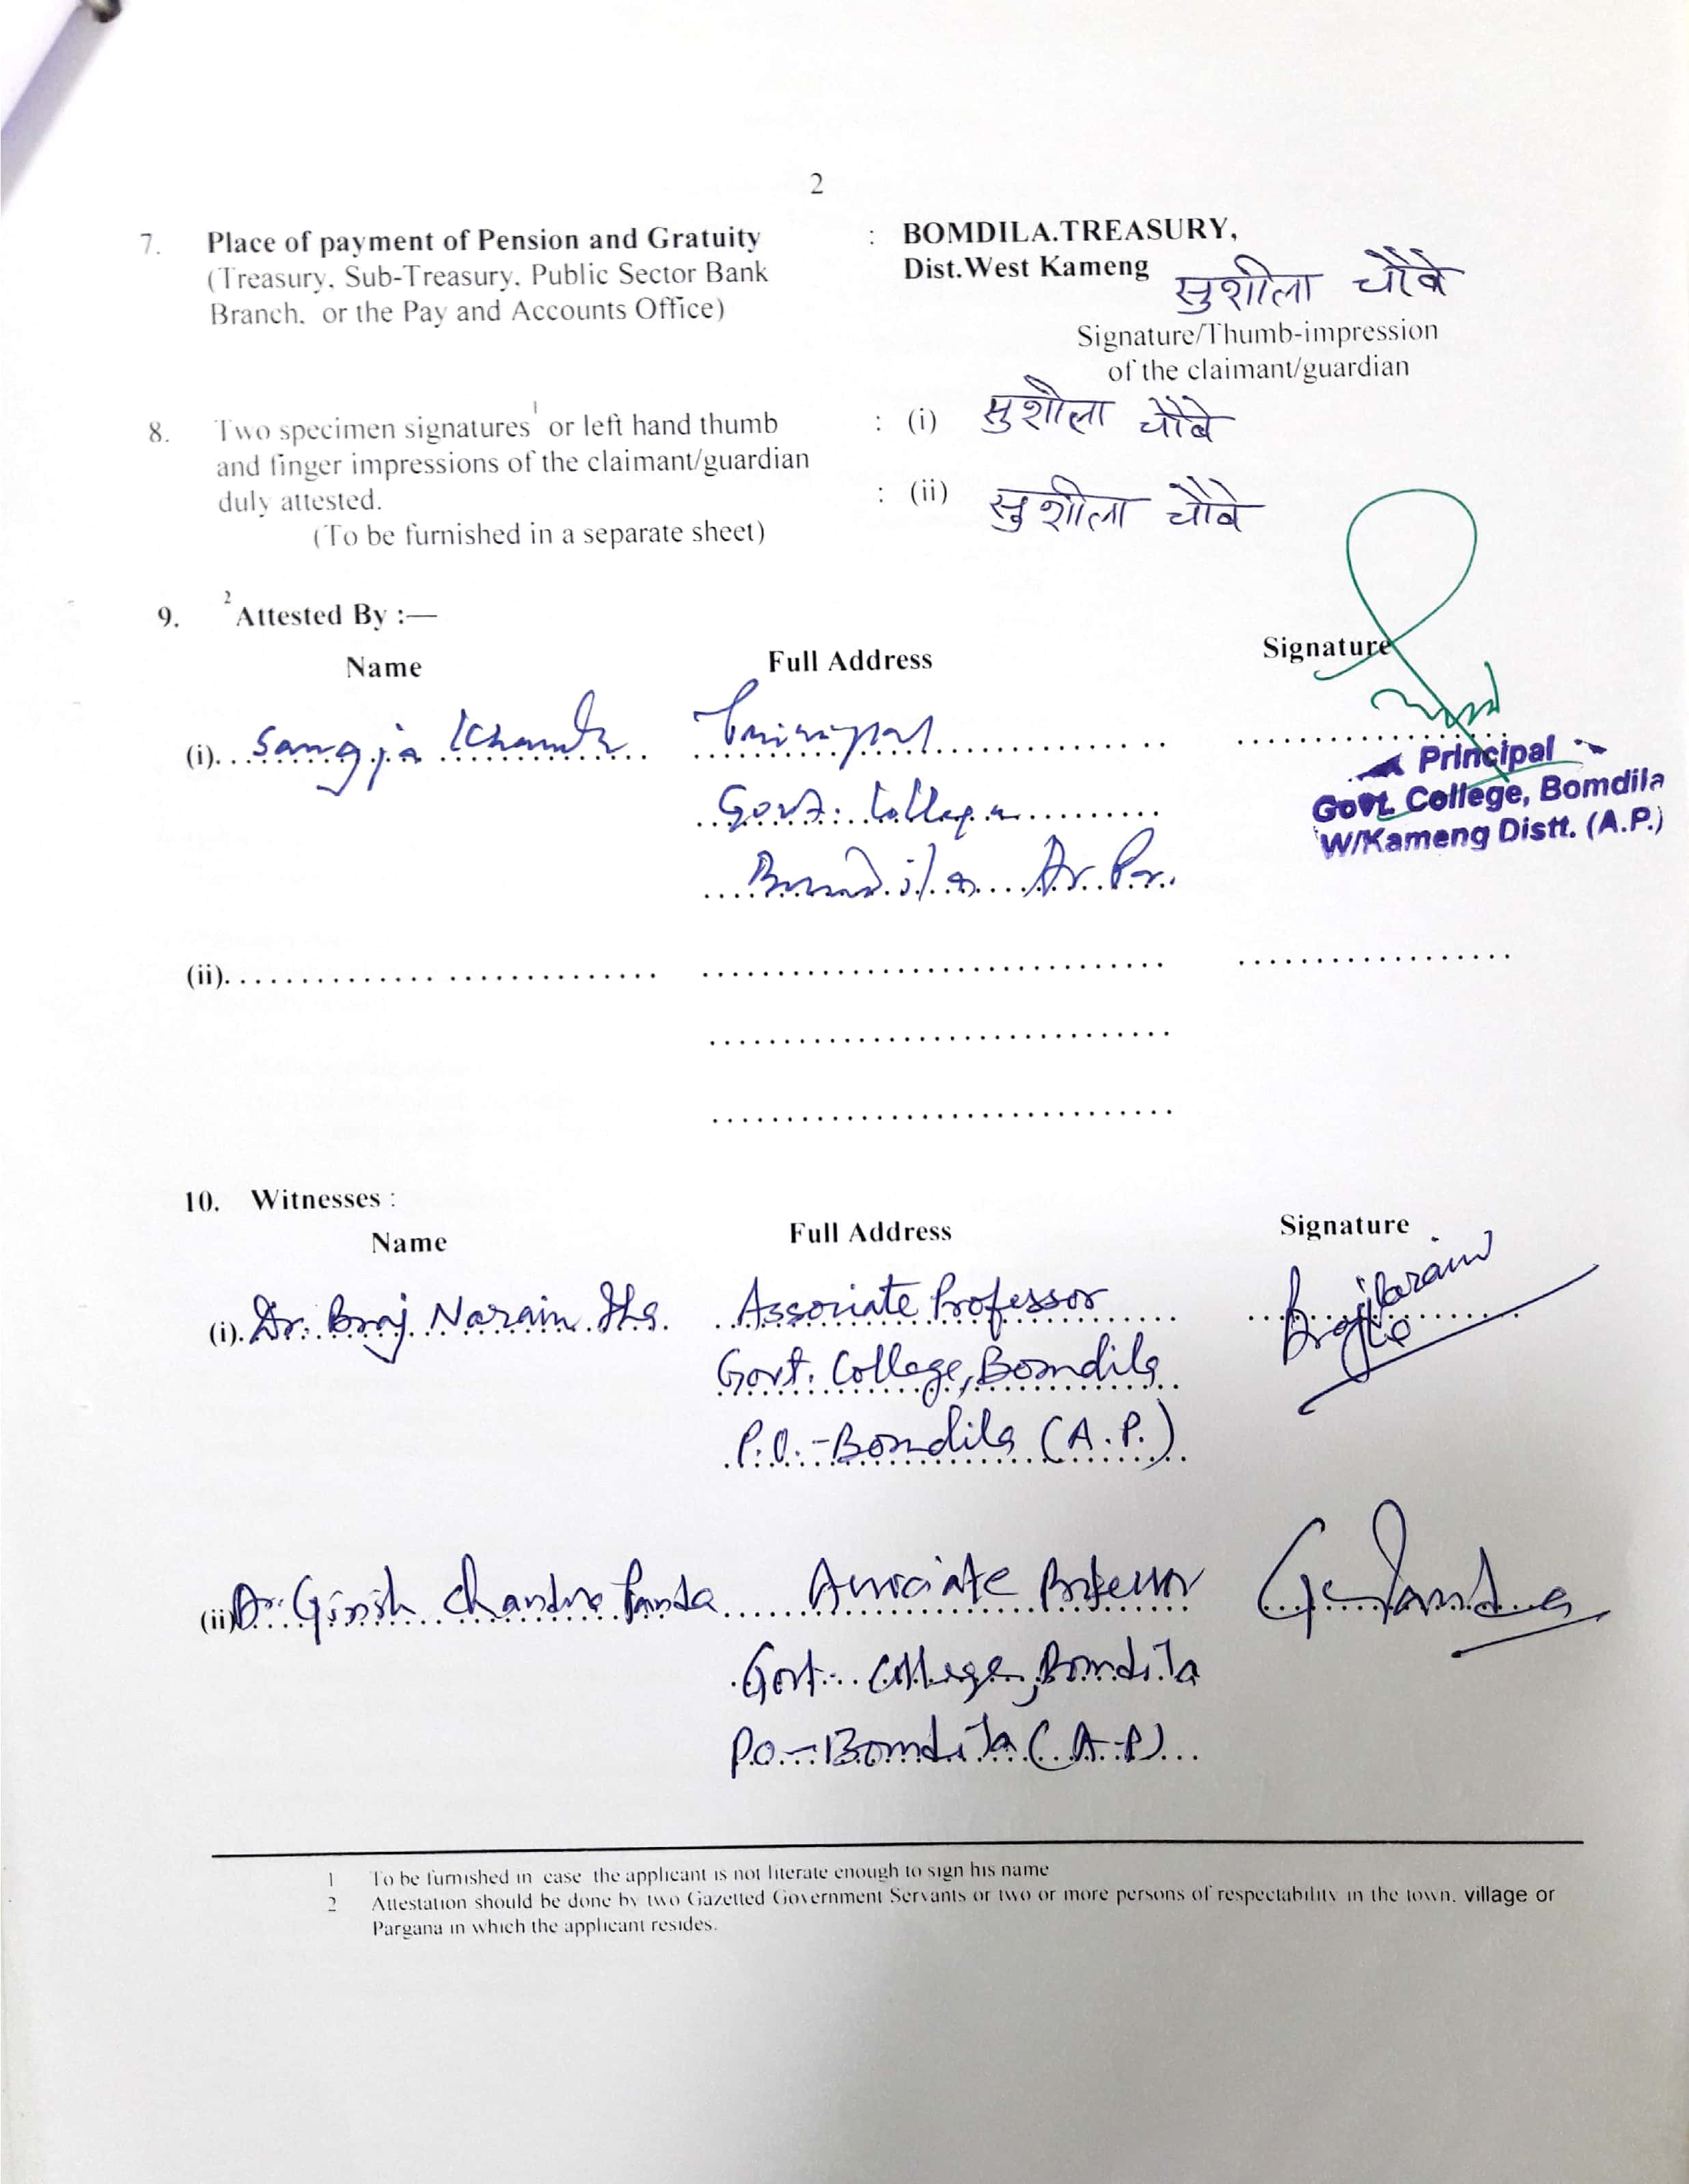 2
7. Place of payment of Pension and Gratuity : BOMDILA.TREASURY,
(Treasury, Sub-Treasury, Public Sector Bank Dist.West Kameng सुशीला चौबे
Branch, or the Pay and Accounts Office)
Signature/Thumb-impression
of the claimant/guardian
8. Two specimen signatures1 or left hand thumb : (i) सुशीला चौबे
and finger impressions of the claimant/guardian
duly attested. : (ii) सुशीला चौबे
(To be furnished in a separate sheet)
9. 2 Attested By :—
Name Full Address Signature
(i). Sangja Principal
Principal
Govt. College
Govt. College, Bomdila
W/Kameng Distt. (A.P.)
Bomdila Ar. Pr.
(ii).
10. Witnesses :
Name Full Address Signature
(i). Dr. Braj Narain Jha. Associate Professor
Govt. College, Bomdila
P.O.-Bomdila (A.P.)
(ii) Dr. Girish Chandra Panda Associate Professor GcPanda
Govt. College, Bomdila
P.O.-Bomdila (A.P)
1 To be furnished in case the applicant is not literate enough to sign his name
2 Attestation should be done by two Gazetted Government Servants or two or more persons of respectability in the town, village or
Pargana in which the applicant resides.